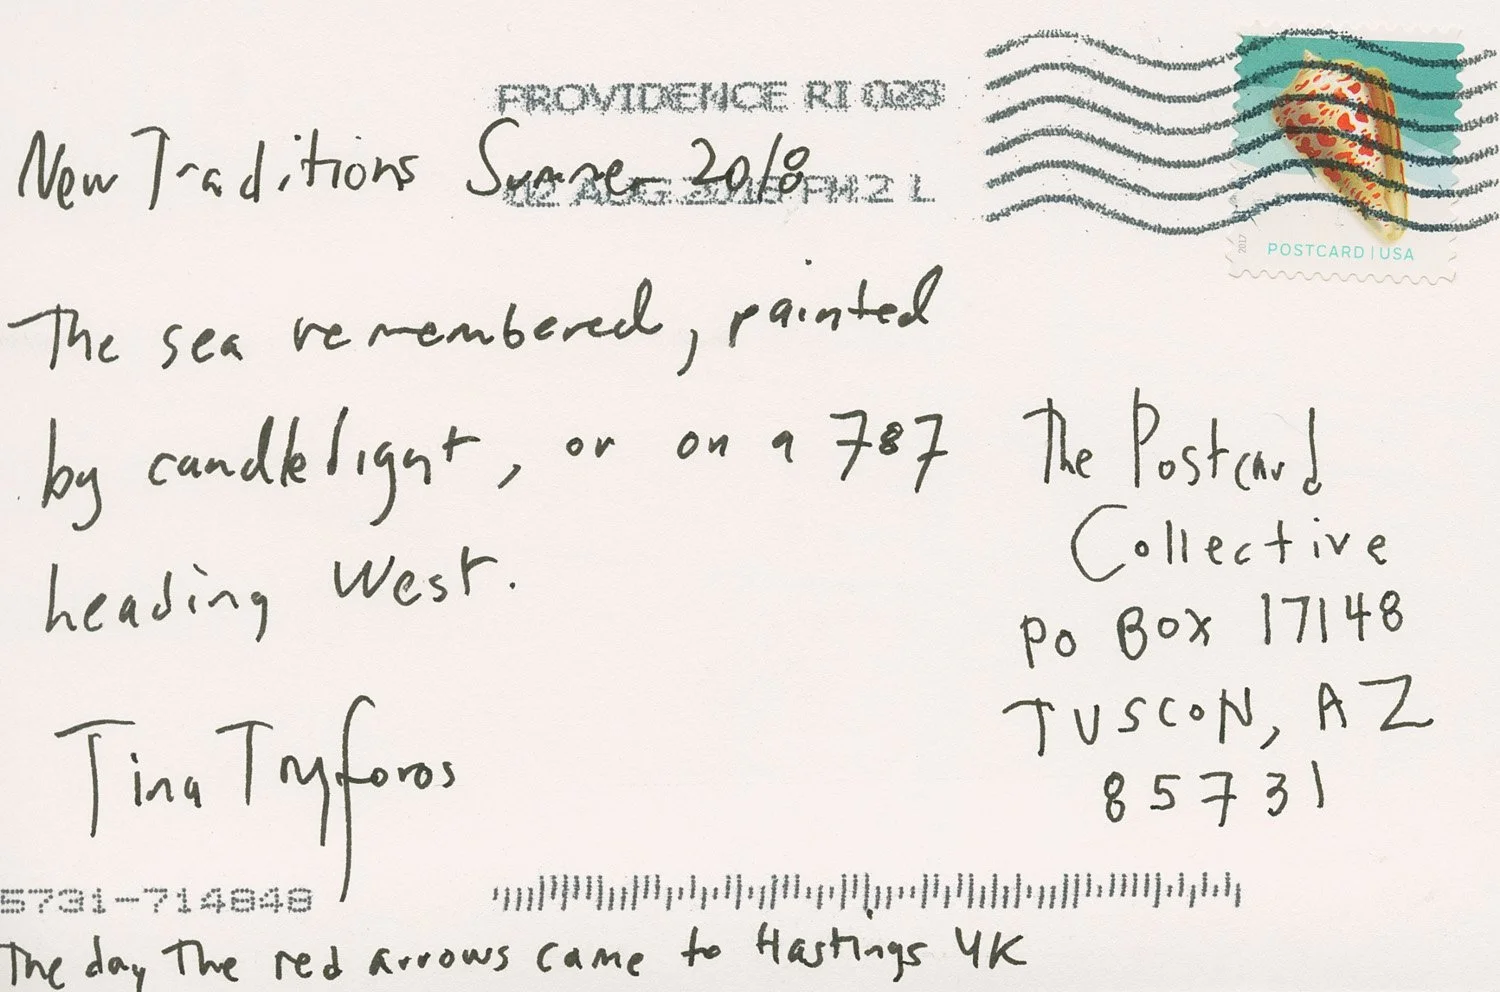 PROVIDENCE RI 028
New Traditions Summer 2018
02 AUG 2018 PM 2 L
2017
POSTCARD | USA
The sea remembered, painted
by candlelight, or on a 787
heading West.
Tina Tryforos
The Postcard
Collective
PO Box 17148
TUSCON, AZ
85731
5731-714848
The day The red arrows came to Hastings UK